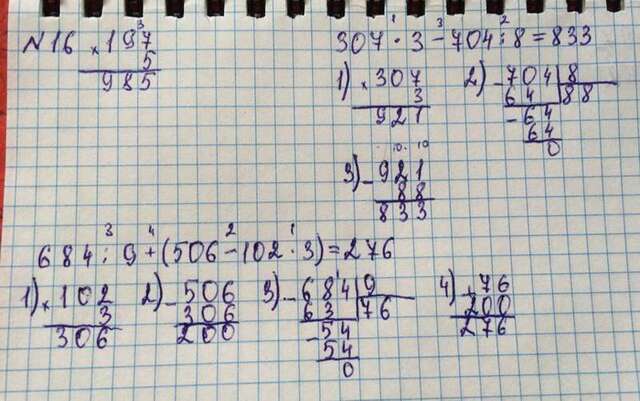 N16 × 197
5
985
307 · 3 - 704 : 8 = 833
1) × 307
3
921
2) - 704 | 8
64 | 88
- 64
64
0
3) - 921
88
833
684 : 9 + (506 - 102 · 3) = 276
1) × 102
3
306
2) - 506
306
200
3) - 684 | 9
63 | 76
- 54
54
0
4) + 76
200
276